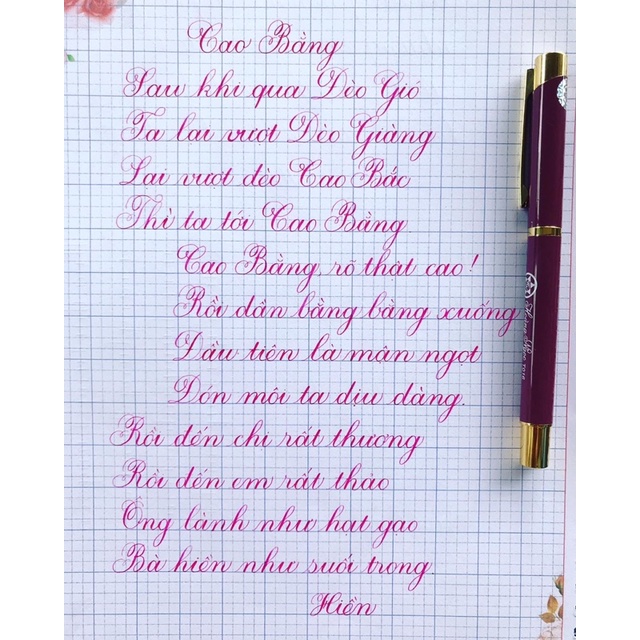 Cao Bằng
Sau khi qua Đèo Gió
Ta lại vượt Đèo Giàng
Lại vượt đèo Cao Bắc
Thì ta tới Cao Bằng
Cao Bằng rõ thật cao!
Rồi dần bằng bằng xuống
Đầu tiên là mận ngọt
Đón môi ta dịu dàng.
Rồi đến chị rất thương
Rồi đến em rất thảo
Ông lành như hạt gạo
Bà hiền như suối trong.
Hiền